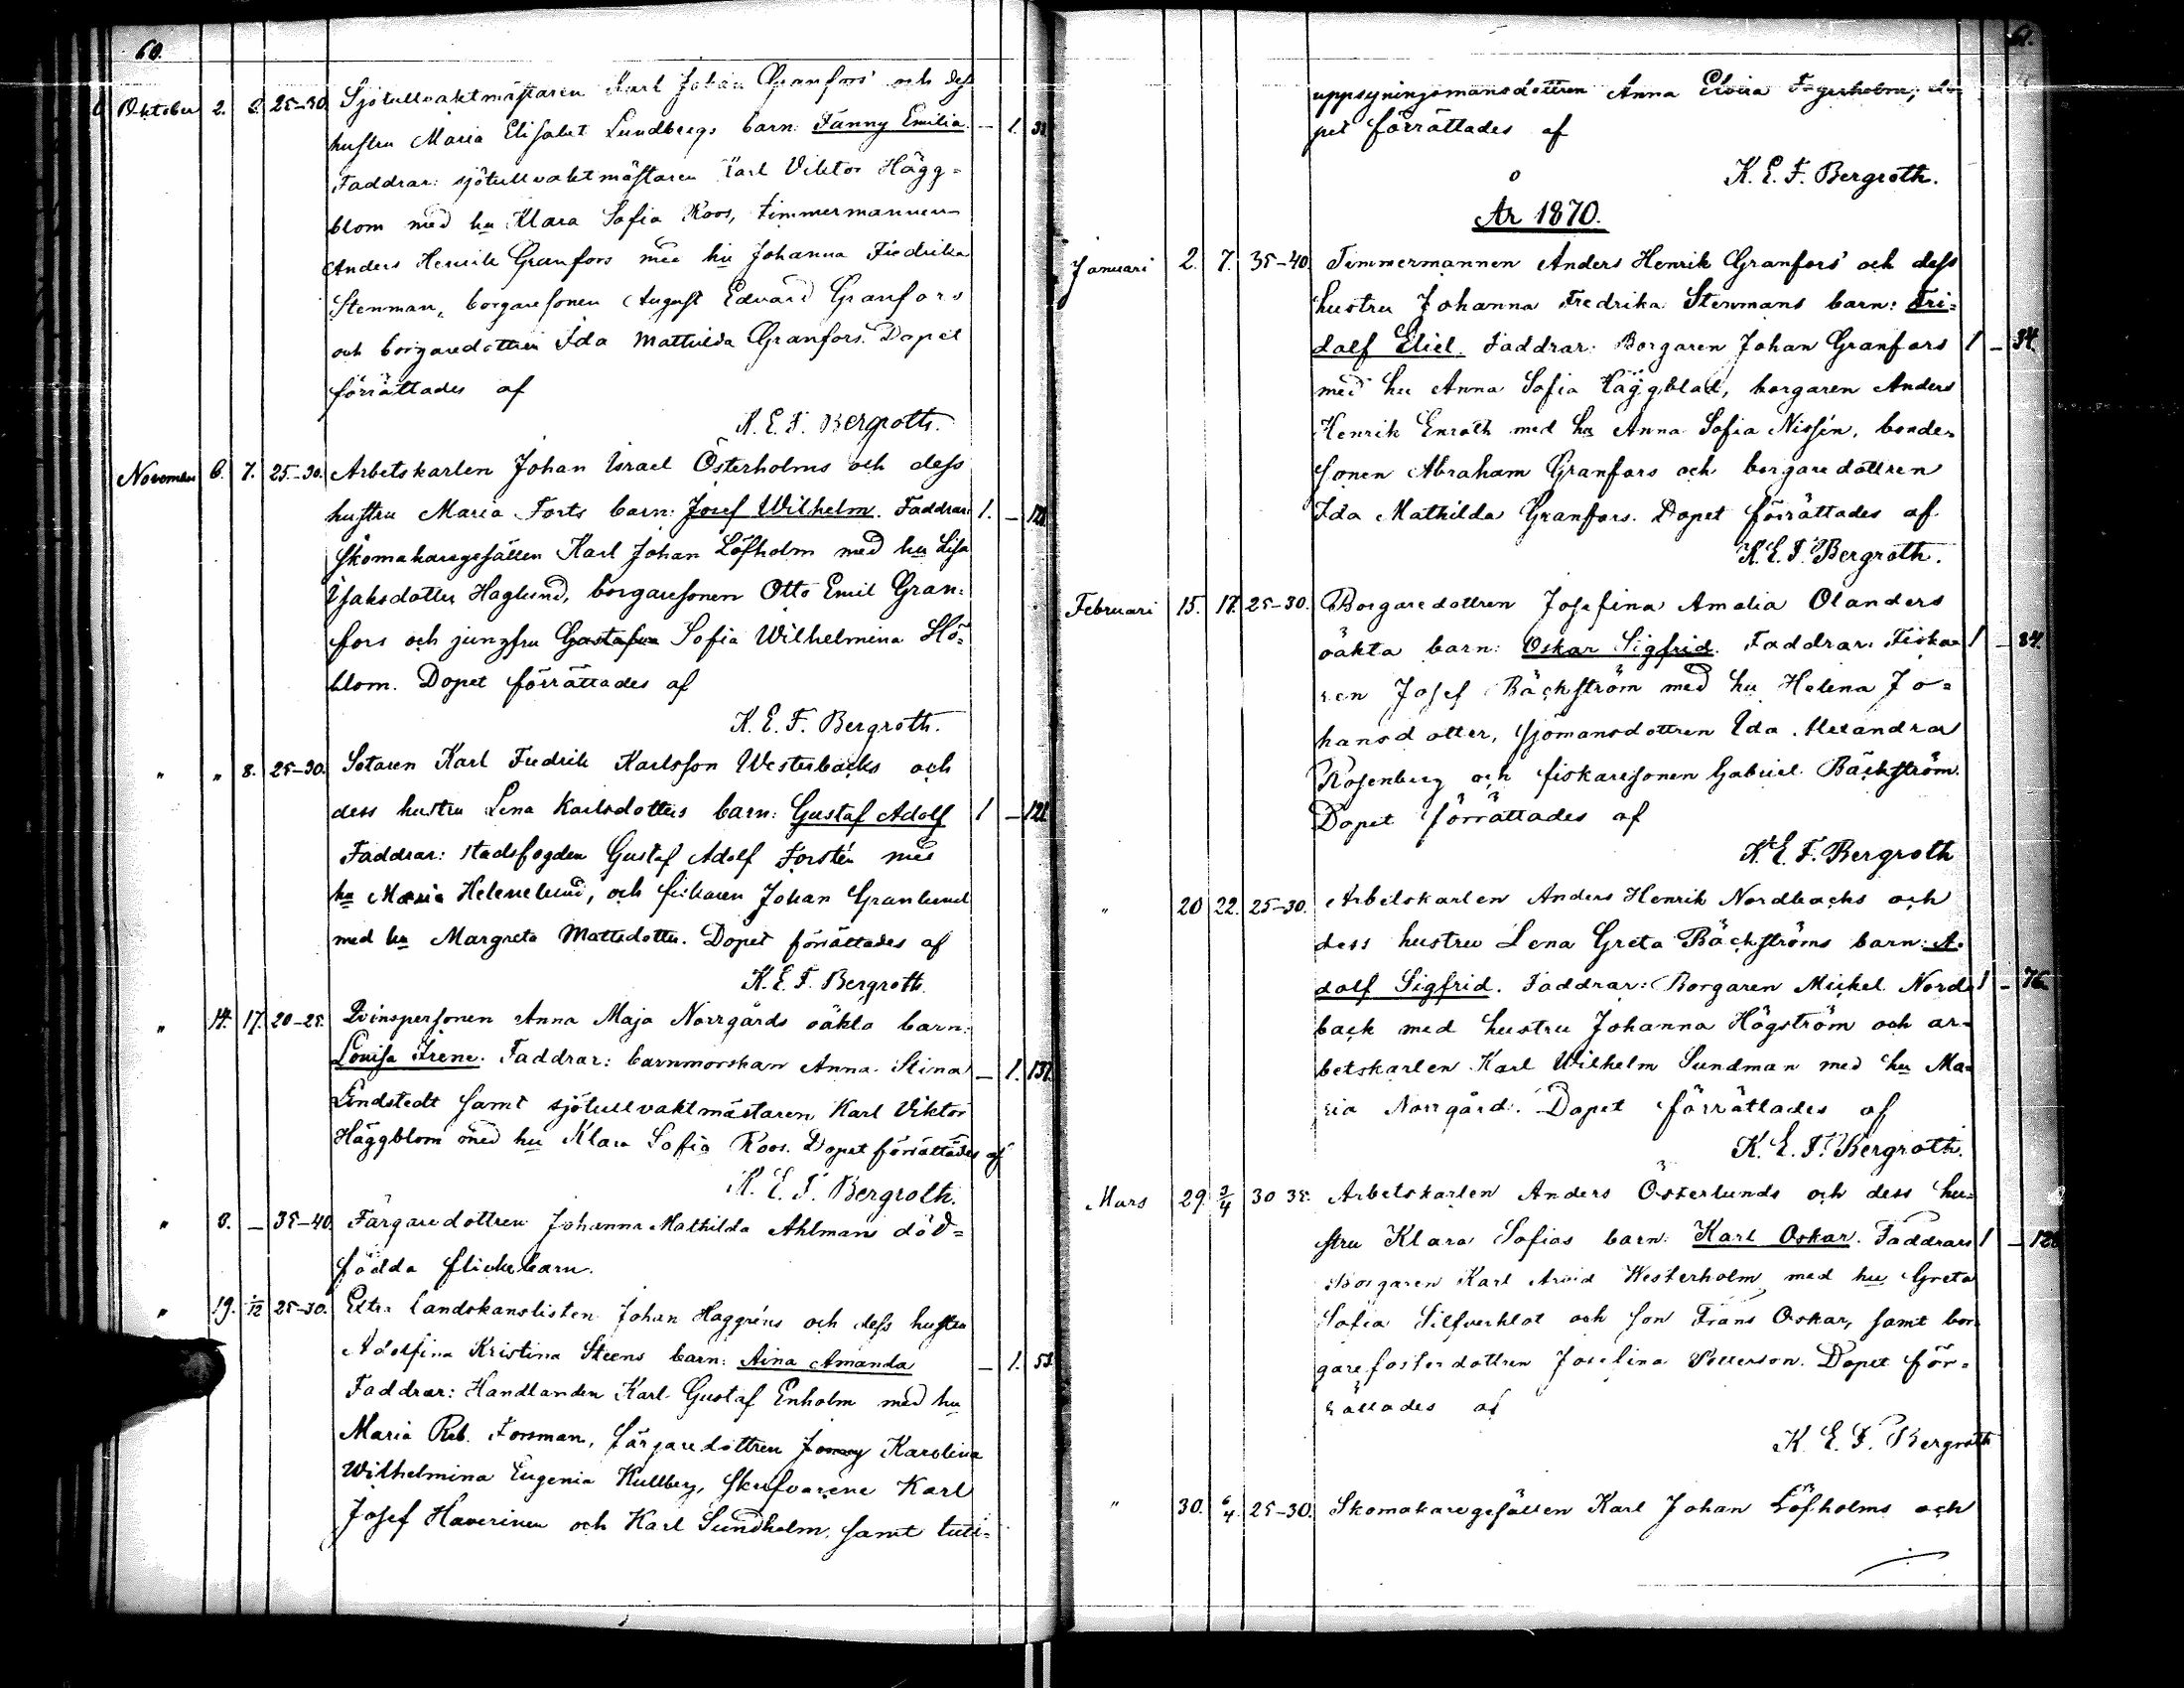 60.
Oktober 2. 8. 25-30. Sjötullvaktmästaren Karl Johan Granfors' och dess
hustru Maria Elisabet Lundbergs barn: Fanny Emilia. — 1. 31
Faddrar: sjötullvaktmästaren Karl Viktor Hägg-
blom med hu Klara Sofia Roos, timmermannen
Anders Henrik Granfors med hu Johanna Fredrika
Stenman, borgaresonen August Edvard Granfors
och borgaredottren Ida Mathilda Granfors. Dopet
förrättades af
K. E. F. Bergroth.
November 6. 7. 25-30. Arbetskarlen Johan Israel Österholms och dess
hustru Maria Forts barn: Josef Wilhelm. Faddrar: 1. — 121
skomakaregesällen Karl Johan Löfholm med hu Lisa
Isaksdotter Haglund, borgaresonen Otto Emil Gran-
fors och jungfru Gustafva Sofia Wilhelmina Hö-
blom. Dopet förrättades af
K. E. F. Bergroth.
" " 8. 25-30. Sotaren Karl Fredrik Karlsson Westerbacks och
dess hustru Lena Karlsdotters barn: Gustaf Adolf 1 — 121
Faddrar: stadsfogden Gustaf Adolf Forstén med
hu Maria Helenelund, och fiskaren Johan Granlund
med hu Margreta Mattsdotter. Dopet förrättades af
K. E. F. Bergroth.
" 14. 17. 20-25. Qvinspersonen Anna Maja Norrgårds oäkta barn:
Lovisa Irene. Faddrar: barnmorskan Anna Stina — 1. 131.
Lindstedt samt sjötullvaktmästaren Karl Viktor
Häggblom med hu Klara Sofia Roos. Dopet förrättades af
K. E. F. Bergroth.
" 8. — 35-40. Färgaredottren Johanna Mathilda Ahlmans död-
födda flickebarn.
" 19. 1/12 25-30. Extra landskanslisten Johan Haggréns och dess hustru
Adolfina Kristina Steens barn: Aina Amanda — 1. 53
Faddrar: Handlanden Karl Gustaf Enholm med hu
Maria Reb. Forsman, färgaredottren Jenny Karolina
Wilhelmina Eugenia Kullberg, skrifvarene Karl
Josef Haverinen och Karl Sundholm, samt tull-
61.
uppsyningsmansdottren Anna Elvira Fagerholm; do-
pet förrättades af
K. E. F. Bergroth.
År 1870.
Januari 2. 7. 35-40 Timmermannen Anders Henrik Granfors' och dess
hustru Johanna Fredrika Stenmans barn: Fri-
dolf Eliel. Faddrar: Borgaren Johan Granfors 1 — 34.
med hu Anna Sofia Häggblad, borgaren Anders
Henrik Enroth med hu Anna Sofia Nissén, bonde-
sonen Abraham Granfors och borgaredottren
Ida Mathilda Granfors. Dopet förrättades af
K. E. F. Bergroth.
Februari 15. 17. 25-30. Borgaredottren Josefina Amalia Olanders
oäkta barn: Oskar Sigfrid. Faddrar: Fiska- 1 — 84.
ren Josef Bäckström med hu Helena Jo-
hansdotter, sjömansdottren Ida Alexandra
Rosenberg och fiskaresonen Gabriel Bäckström.
Dopet förrättades af
K. E. F. Bergroth
" 20 22. 25-30. Arbetskarlen Anders Henrik Nordbacks och
dess hustru Lena Greta Bäckströms barn: A-
dolf Sigfrid. Faddrar: Borgaren Mickel Nord- 1 — 76
back med hustru Johanna Högström och ar-
betskarlen Karl Wilhelm Sundman med hu Ma-
ria Norrgård. Dopet förrättades af
K. E. F. Bergroth.
Mars 29. 3/4 30-35. Arbetskarlen Anders Österlunds och dess hu-
stru Klara Sofias barn: Karl Oskar. Faddrar: 1 —
Borgaren Karl Arvid Westerholm med hu Greta
Sofia Silfverklot och son Frans Oskar, samt bor-
garefosterdottren Joselina Petterson. Dopet för-
rättades af
K. E. F. Bergroth
" 30. 6/4 25-30. Skomakaregesällen Karl Johan Löfholms och